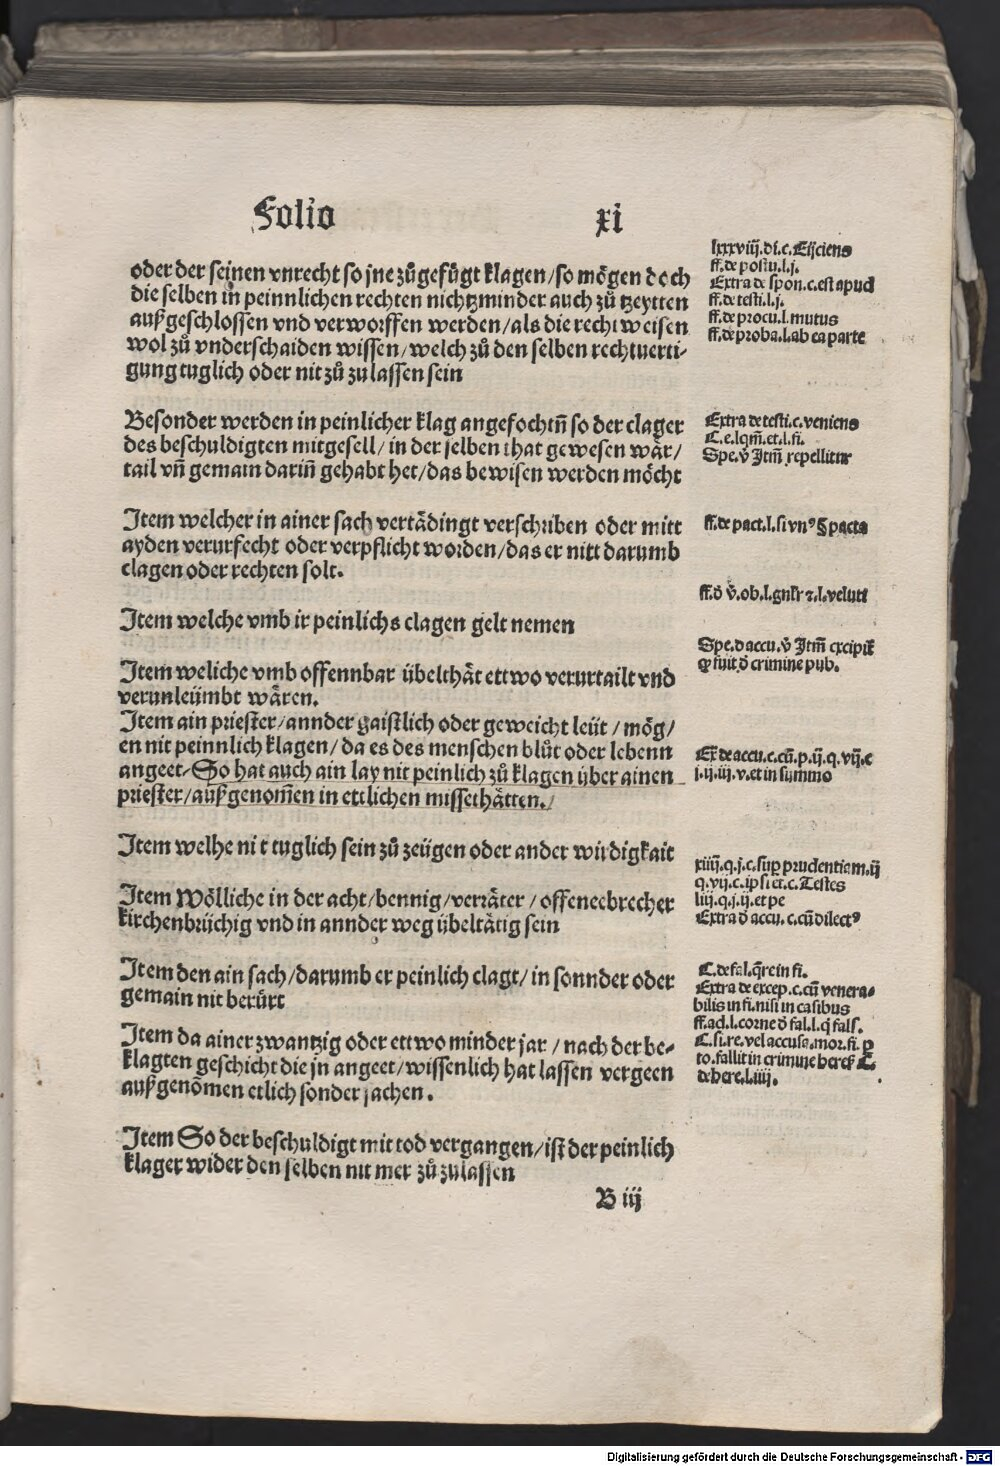 Folio xi
oder der seinen vnrecht so jne zůgefůgt klagen/so mögen doch
die selben in peinnlichen rechten nichtzminder auch zů tzeytten
außgeschlossen vnd verworffen werden/als die recht weisen
wol zů vnderschaiden wissen/welch zů den selben rechtuerti-
gung tuglich oder nit zů zu lassen sein
Besonder werden in peinlicher klag angefochtñ so der clager
des beschuldigten mitgesell/in der selben that gewesen wär/
tail vñ gemain dariñ gehabt het/das bewisen werden möcht
Item welcher in ainer sach vertädingt verschriben oder mitt
ayden verurfecht oder verpflicht worden/das er nitt darumb
clagen oder rechten solt.
Item welche vmb ir peinlichs clagen gelt nemen
Item weliche vmb offennbar übelthät ettwo verurtailt vnd
verunleümbt wären.
Item ain priester/annder gaistlich oder geweicht leüt/mög/
en nit peinnlich klagen/da es des menschen blůt oder lebenn
angeet. So hat auch ain lay nit peinlich zů klagen über ainen
priester/außgenom̃en in ettlichen missethätten./
Item welhe nit tuglich sein zů zeügen oder ander wirdigkait
Item Wölliche in der acht/bennig/verräter/offeneebrecher
kirchenbrüchig vnd in annder weg übeltätig sein
Item den ain sach/darumb er peinlich clagt/in sonnder oder
gemain nit berürt
Item da ainer zwantzig oder ettwo minder jar/nach der be-
klagten geschicht die jn angeet/wissenlich hat lassen vergeen
außgenõmen etlich sonder sachen.
Item So der beschuldigt mit tod vergangen/ist der peinlich
klager wider den selben nit mer zů zulassen
B iij
lxxxviij.di.c.Eijciens
ff.de postu.l.j.
Extra de spon.c.est apud
ff.de testi.l.j.
ff.de procu.l.mutus
ff.de proba.l.ab ea parte
Extra de testi.c.veniens
C.e.lqm̃.et.l.fi.
Spe.v̉ Itm̃ repellitur
ff.de pact.l.si vnꝰ § pacta
ff.ð v̉.ob.l.gnlr̃ ⁊.l.veluti
Spe.ð accu.v̉ Itm̃ excipit̃
ꝙ fuit ð crimine pub.
Ex̃ de accu.c.cũ.p.ij.q.vij.c
j.ij.iij.v.et in summo
xiiij.q.j.c.sup̱ prudentiam.ij
q.vij.c.ipsi et.c.Testes
iiij.q.j.ij.et pe
Extra ð accu.c.cũ dilectꝰ
C.de fal.q̃rein fi.
Extra de excep.c.cũ venera-
bilis in fi.nisi in casibus
ff.ad.l.corne ð fal.l.q̃ fals.
C.si.re.vel accusa.mor.fi.ꝑ
to.fallit in crimine heres̃ C.
de here.l.iiij.
Digitalisierung gefördert durch die Deutsche Forschungsgemeinschaft - DFG